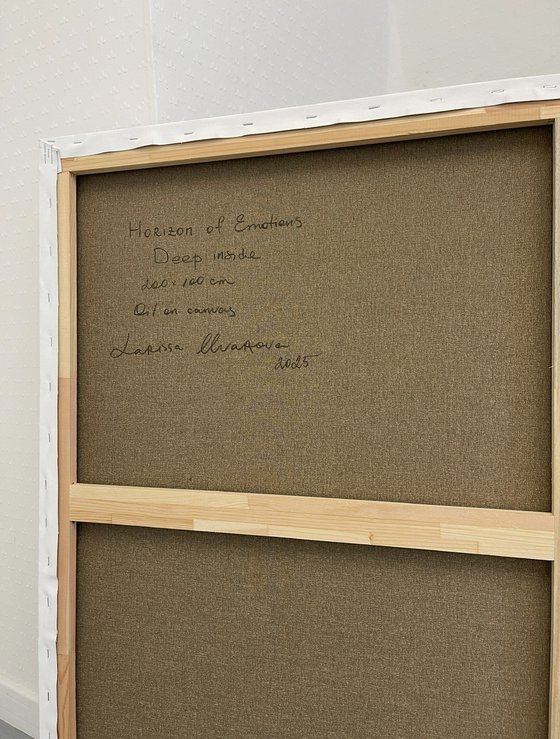 Horizon of Emotions
Deep inside
200 x 100 cm
Oil on canvas
Larissa Uvarova
2025